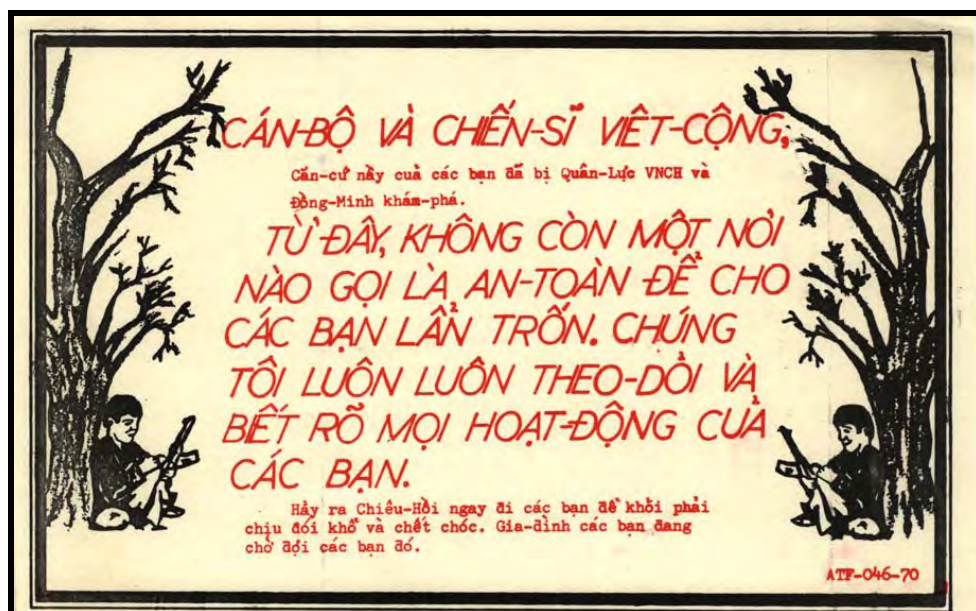 CÁN-BỘ VÀ CHIẾN-SĨ VIÊT-CỘNG,
Căn-cứ nầy cuả các bạn đã bị Quân-Lực VNCH và
Đồng-Minh khám-phá.
TỪ ĐÂY, KHÔNG CÒN MỘT NƠI
NÀO GỌI LÀ AN-TOÀN ĐỂ CHO
CÁC BẠN LẨN TRỐN. CHÚNG
TÔI LUÔN LUÔN THEO-DÕI VÀ
BIẾT RÕ MỌI HOẠT-ĐỘNG CUẢ
CÁC BẠN.
Hảy ra Chiêu-Hồi ngay đi các bạn để khỏi phải
chịu đói khổ và chết chóc. Gia-đình các bạn đang
chờ đợi các bạn đó.
ATF-046-70